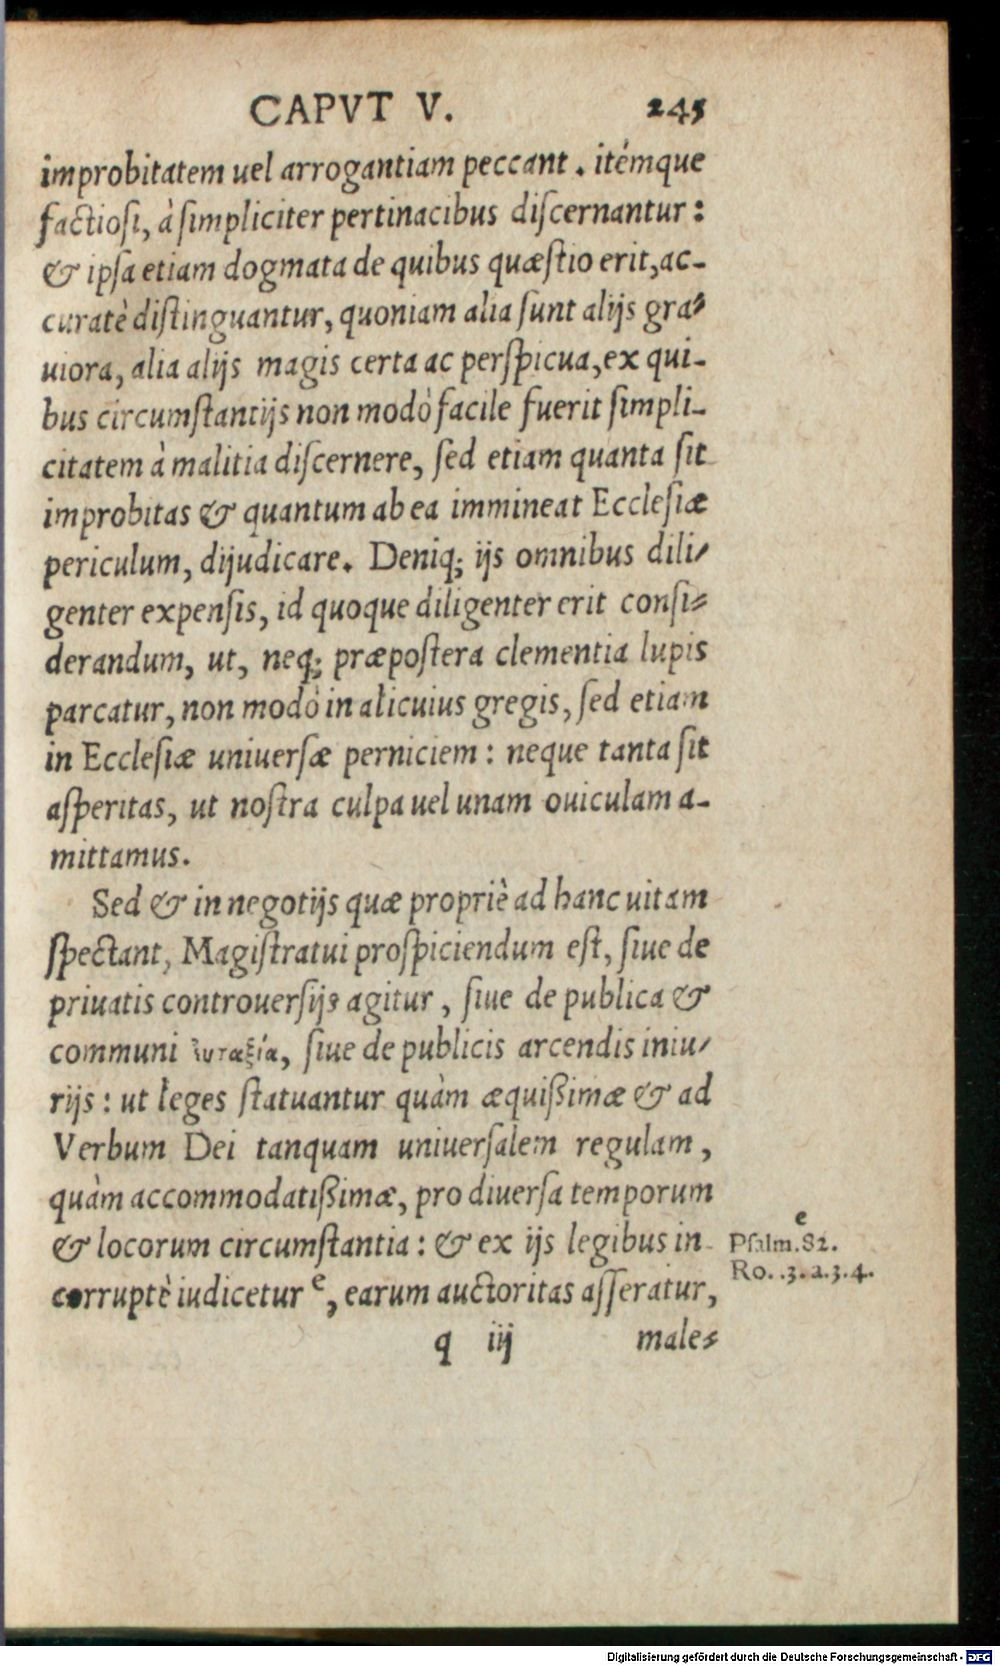 CAPVT V. 245
improbitatem uel arrogantiam peccant. itémque
factiosi, à simpliciter pertinacibus discernantur:
& ipsa etiam dogmata de quibus quæstio erit, ac-
curatè distinguantur, quoniam alia sunt alijs gra-
uiora, alia alijs magis certa ac perspicua, ex qui-
bus circumstantijs non modò facile fuerit simpli-
citatem à malitia discernere, sed etiam quanta sit
improbitas & quantum ab ea immineat Ecclesiæ
periculum, dijudicare. Deniq; ijs omnibus dili-
genter expensis, id quoque diligenter erit consi-
derandum, ut, neq; præpostera clementia lupis
parcatur, non modò in alicuius gregis, sed etiam
in Ecclesiæ uniuersæ perniciem: neque tanta sit
asperitas, ut nostra culpa uel unam ouiculam a-
mittamus.
Sed & in negotijs quæ propriè ad hanc uitam
spectant, Magistratui prospiciendum est, siue de
priuatis controuersijs agitur, siue de publica &
communi ἐυταξία, siue de publicis arcendis iniu-
rijs: ut leges statuantur quàm æquißimæ & ad
Verbum Dei tanquam uniuersalem regulam,
quàm accommodatißimæ, pro diuersa temporum
& locorum circumstantia: & ex ijs legibus in-
corruptè iudicetur e, earum auctoritas asseratur,
e
Psalm.82.
Ro..3.2.3.4.
q iij male-
Digitalisierung gefördert durch die Deutsche Forschungsgemeinschaft - DFG